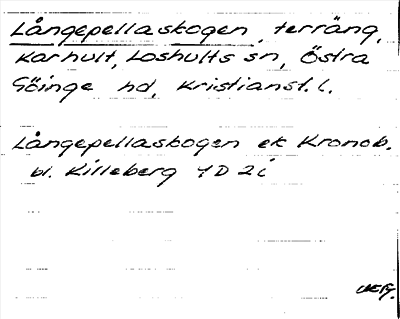 Långepellaskogen, terräng,
Karhult, Loshults sn, Östra
Göinge hd, Kristianst. l.
Långepellaskogen ek Kronob.
bl. Killeberg 4D 2i